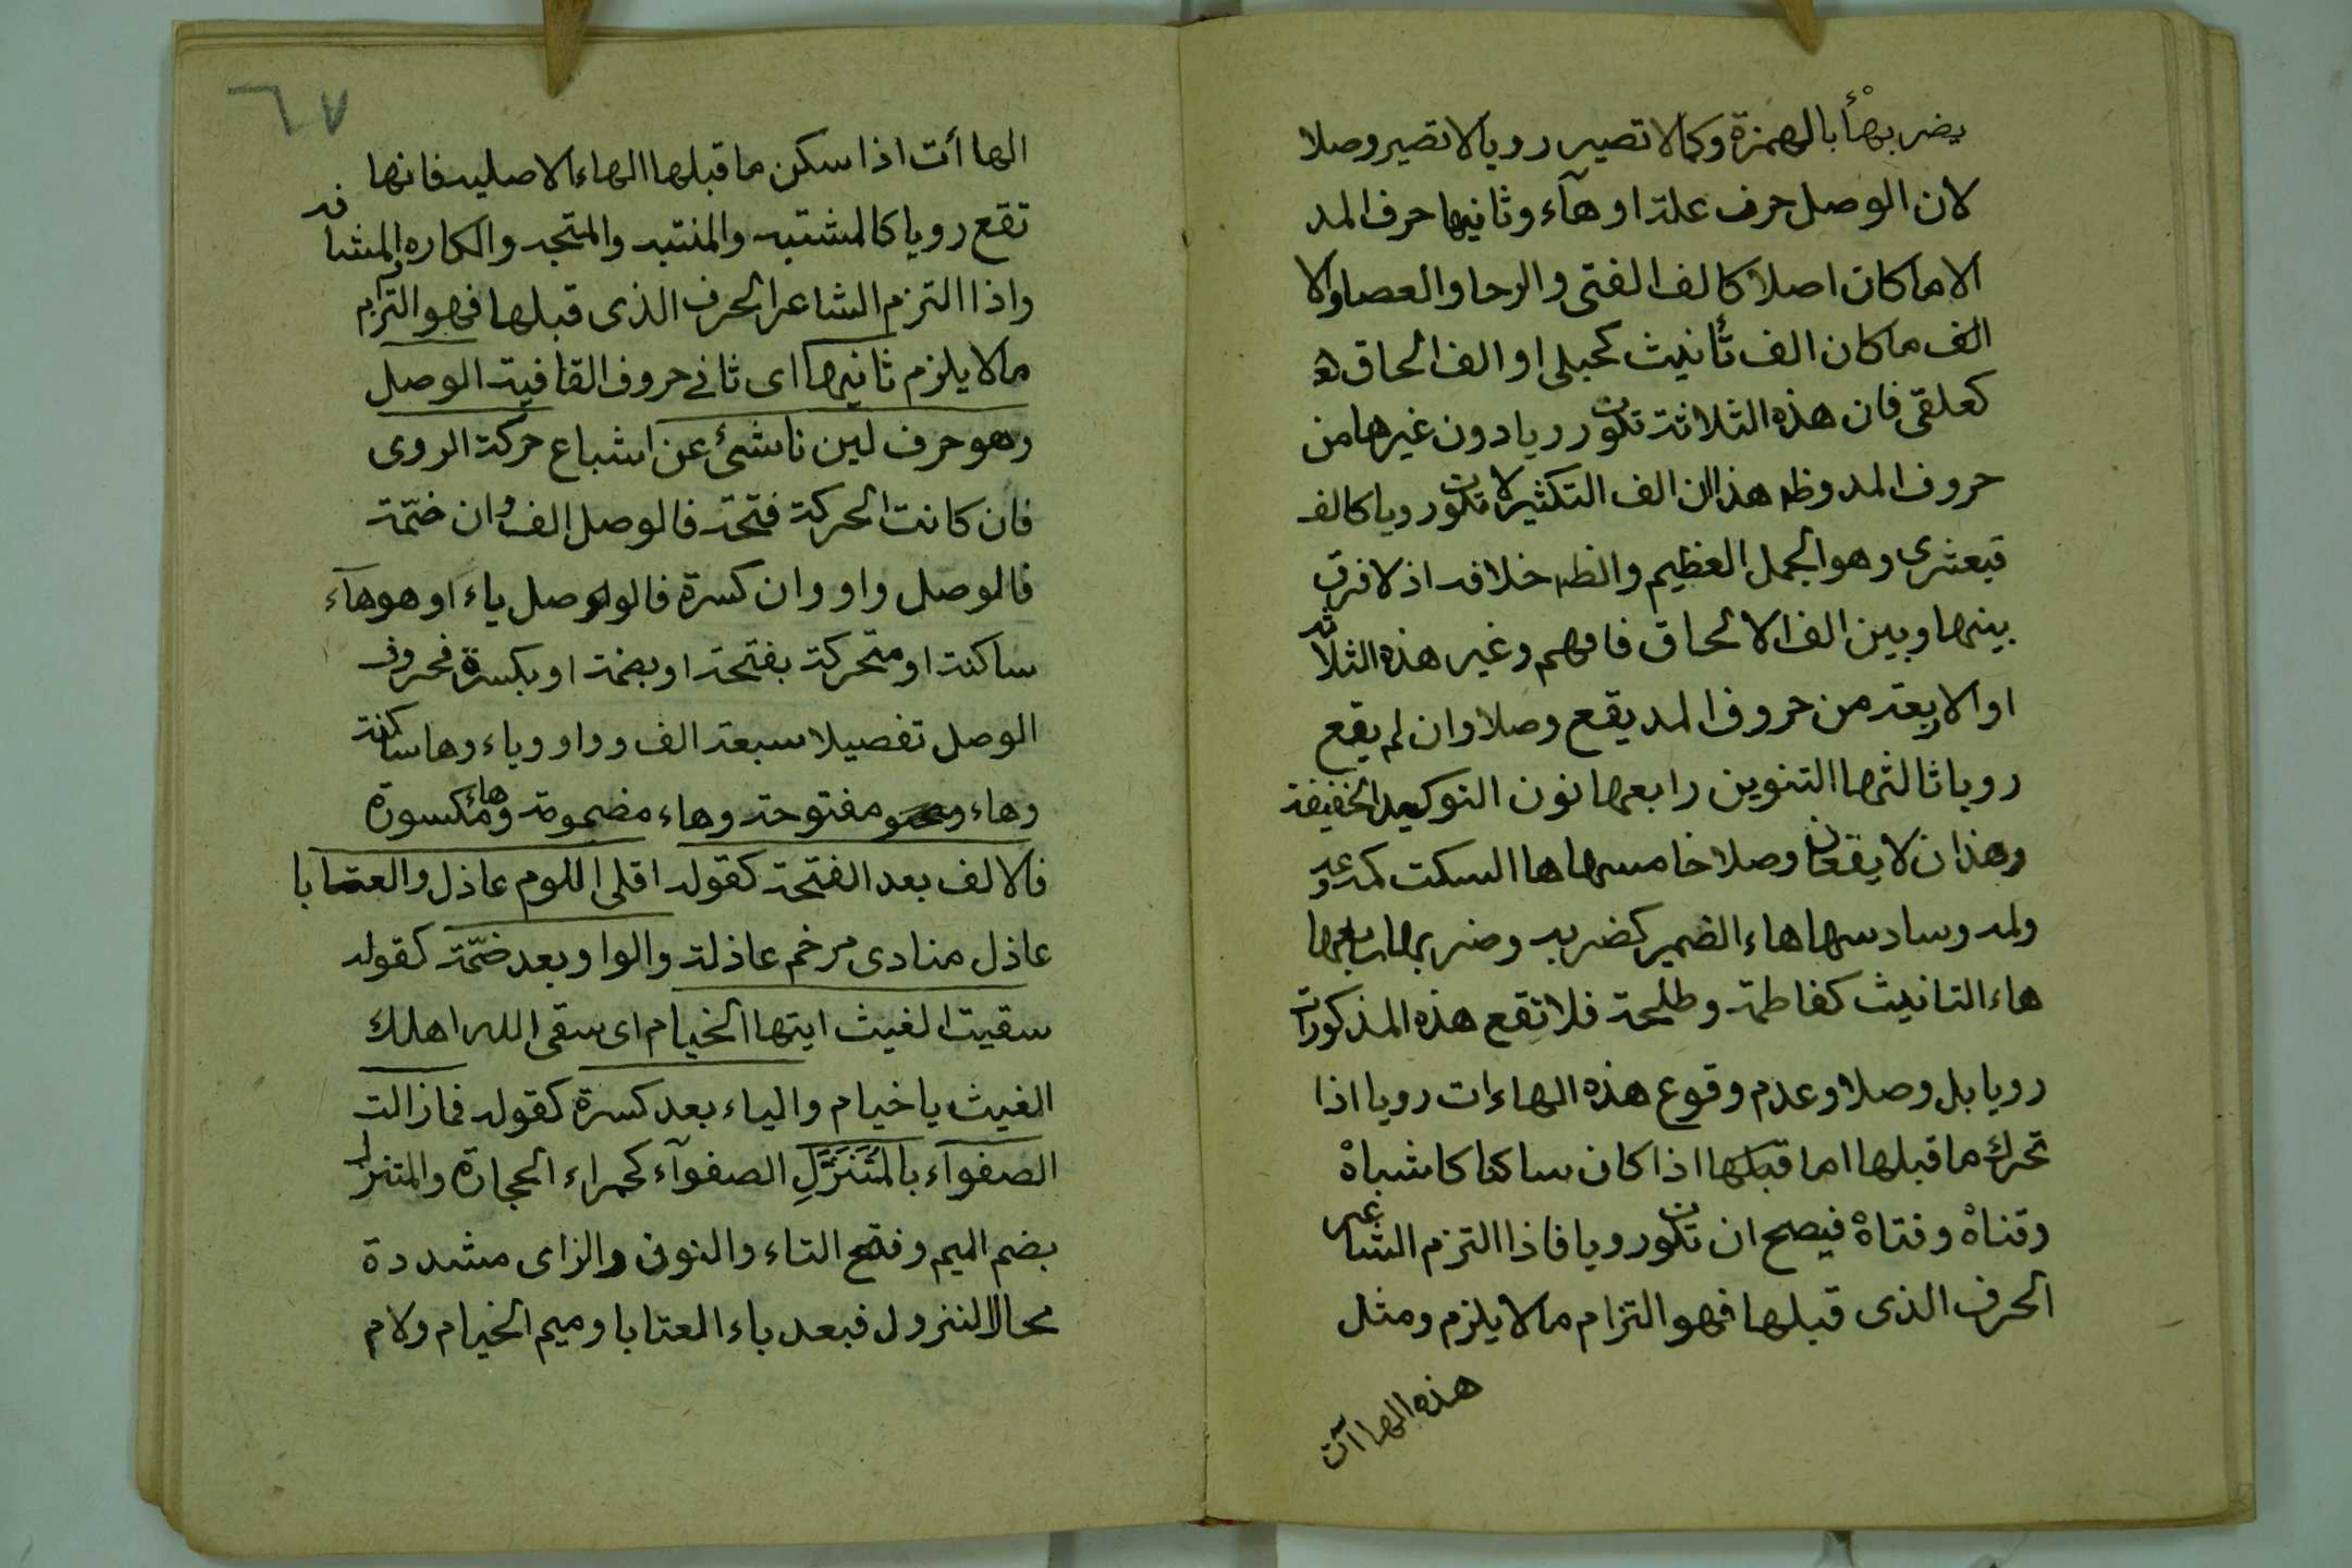 يضربهأ بالهمزة وكما لا تصير رويا لا تصير وصلا
لان الوصل حرف علة او هآء وثانيها حرف المد
الا ما كان اصلا كالف الفتى والرحا والعصا والا
الف ما كان الف تأنيث كحبلى او الف الحاق
كعلقى فان هذه الثلاثة تكون رويا دون غيرها من
حروف المد وظ هذا ان الف التكثير لا تكون رويا كالف
قبعثرى وهو الجمل العظيم والظ خلافه اذ لا فرق
بينها وبين الف الالحاق فافهم وغير هذه الثلاثة
او الاربعة من حروف المد يقع وصلا وان لم يقع
رويا ثالثها التنوين رابعها نون التوكيد الخفيفة
وهذان لا يقعان وصلا خامسها ها السكت كمه وعه
ولمه وسادسها هاء الضمير كضربه وضربها سابعها
هاء التانيث كفاطمة وطلحة فلا تقع هذه المذكورات
رويا بل وصلا وعدم وقوع هذه الهاءات رويا اذا
تحرك ما قبلها اما قبلها اذا كان ساكنا كاشباهْ
وقناهْ وفتاهْ فيصح ان تكون رويا فاذا التزم الشاعر
الحرف الذى قبلها فهو التزام ما لا يلزم ومثل
هذه الهاآت
٦٧
الهاأت اذا سكن ما قبلها الهاء الاصلية فانها
تقع رويا كالمشتبه والمنتبه والمتجه والكاره والمشافه
واذا التزم الشاعر الحرف الذى قبلها فهو التزام
ما لا يلزم ثانيها اى ثانى حروف القافية الوصل
وهو حرف لين ناشئ عن اشباع حركة الروى
فان كانت الحركة فتحة فالوصل الف وان ضمّة
فالوصل واو وان كسرة فالوصل ياء او هو هآء
ساكنة او متحركة بفتحة او بضمة او بكسرة فحروف
الوصل تفصيلا سبعة الف وواو وياء وها ساكنة
وهاء مفتوحة وهاء مضمومة وهاء مكسورة
فالالف بعد الفتحة كقوله اقلى اللوم عاذل والعتابا
عاذل منادى مرخم عاذلة والواو بعد ضمّة كقوله
سقيت الغيث ايتها الخيام اى سقى الله اهلك
الغيث يا خيام والياء بعد كسرة كقوله فما زالت
الصفوآء بالمُتَنَزَّلِ الصفوآء كحمراء الحجارة والمتنزل
بضم الميم وفتح التاء والنون والزاى مشددة
محال النزول فبعد باء العتابا وميم الخيام ولام